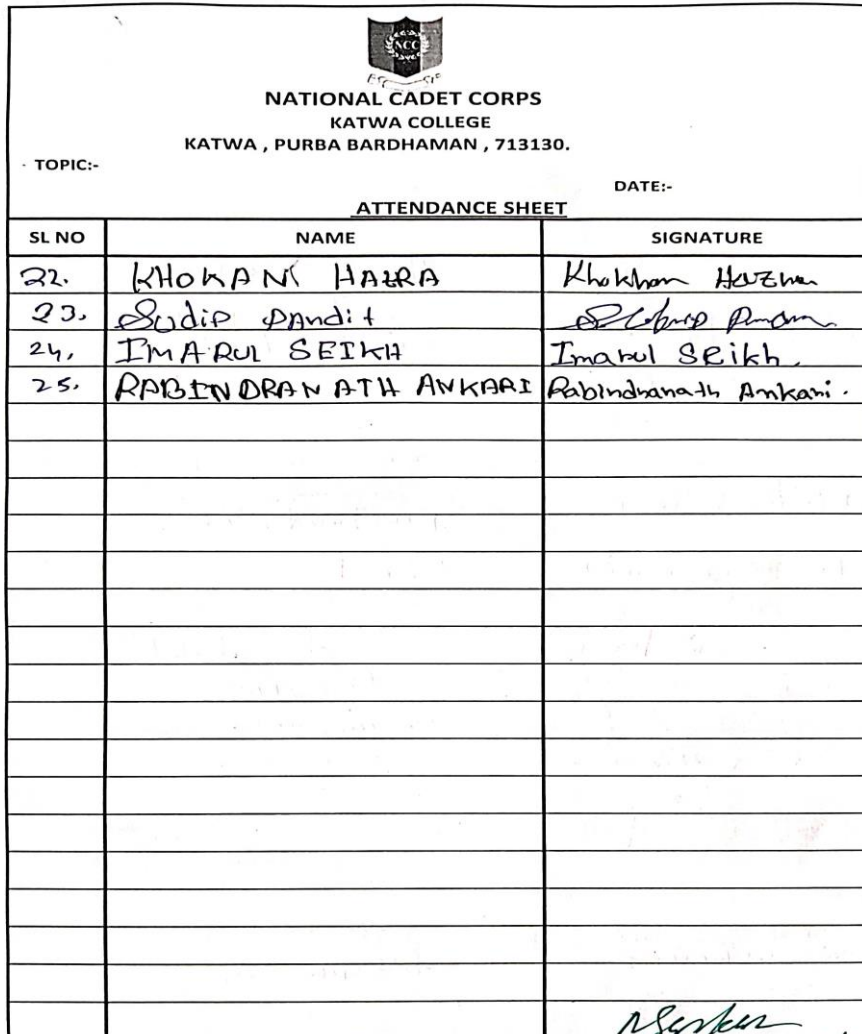 NCC
NATIONAL CADET CORPS
KATWA COLLEGE
KATWA , PURBA BARDHAMAN , 713130.
TOPIC:-
DATE:-
ATTENDANCE SHEET
SL NO NAME SIGNATURE
22. KHOKAN HAZRA Khokhan
23. Sudip Pandit
24. IMARUL SEIKH Imarul Seikh.
25. RABINDRANATH ANKARI Rabindranath Ankari.